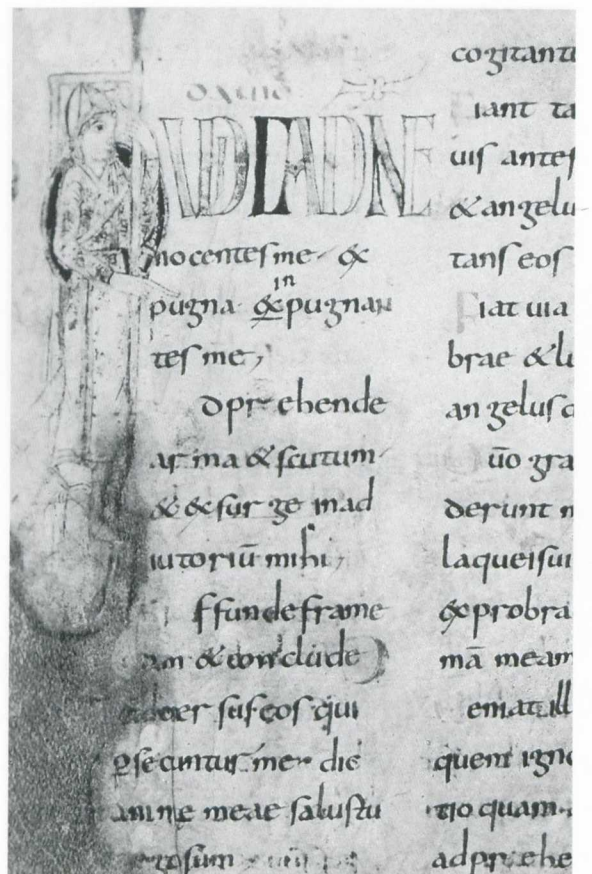 UDICADNE
nocentes me &
in
pugna & pugnan
tes me,
dprehende
arma & scutum
& exsurge inad
iutoriū mihi,
ffunde frame
am & conclude
aduersus eos qui
ꝑsecuntur me dic
anime meae salus tu
ego sum
cogitant
iant
uis ante
& angelu
tans eos
iat uia
brae & lu
angelus
uō gra
derunt
laquei sui
exprobra
mā meam
eniat ill
quem igno
tio quam
adprehe